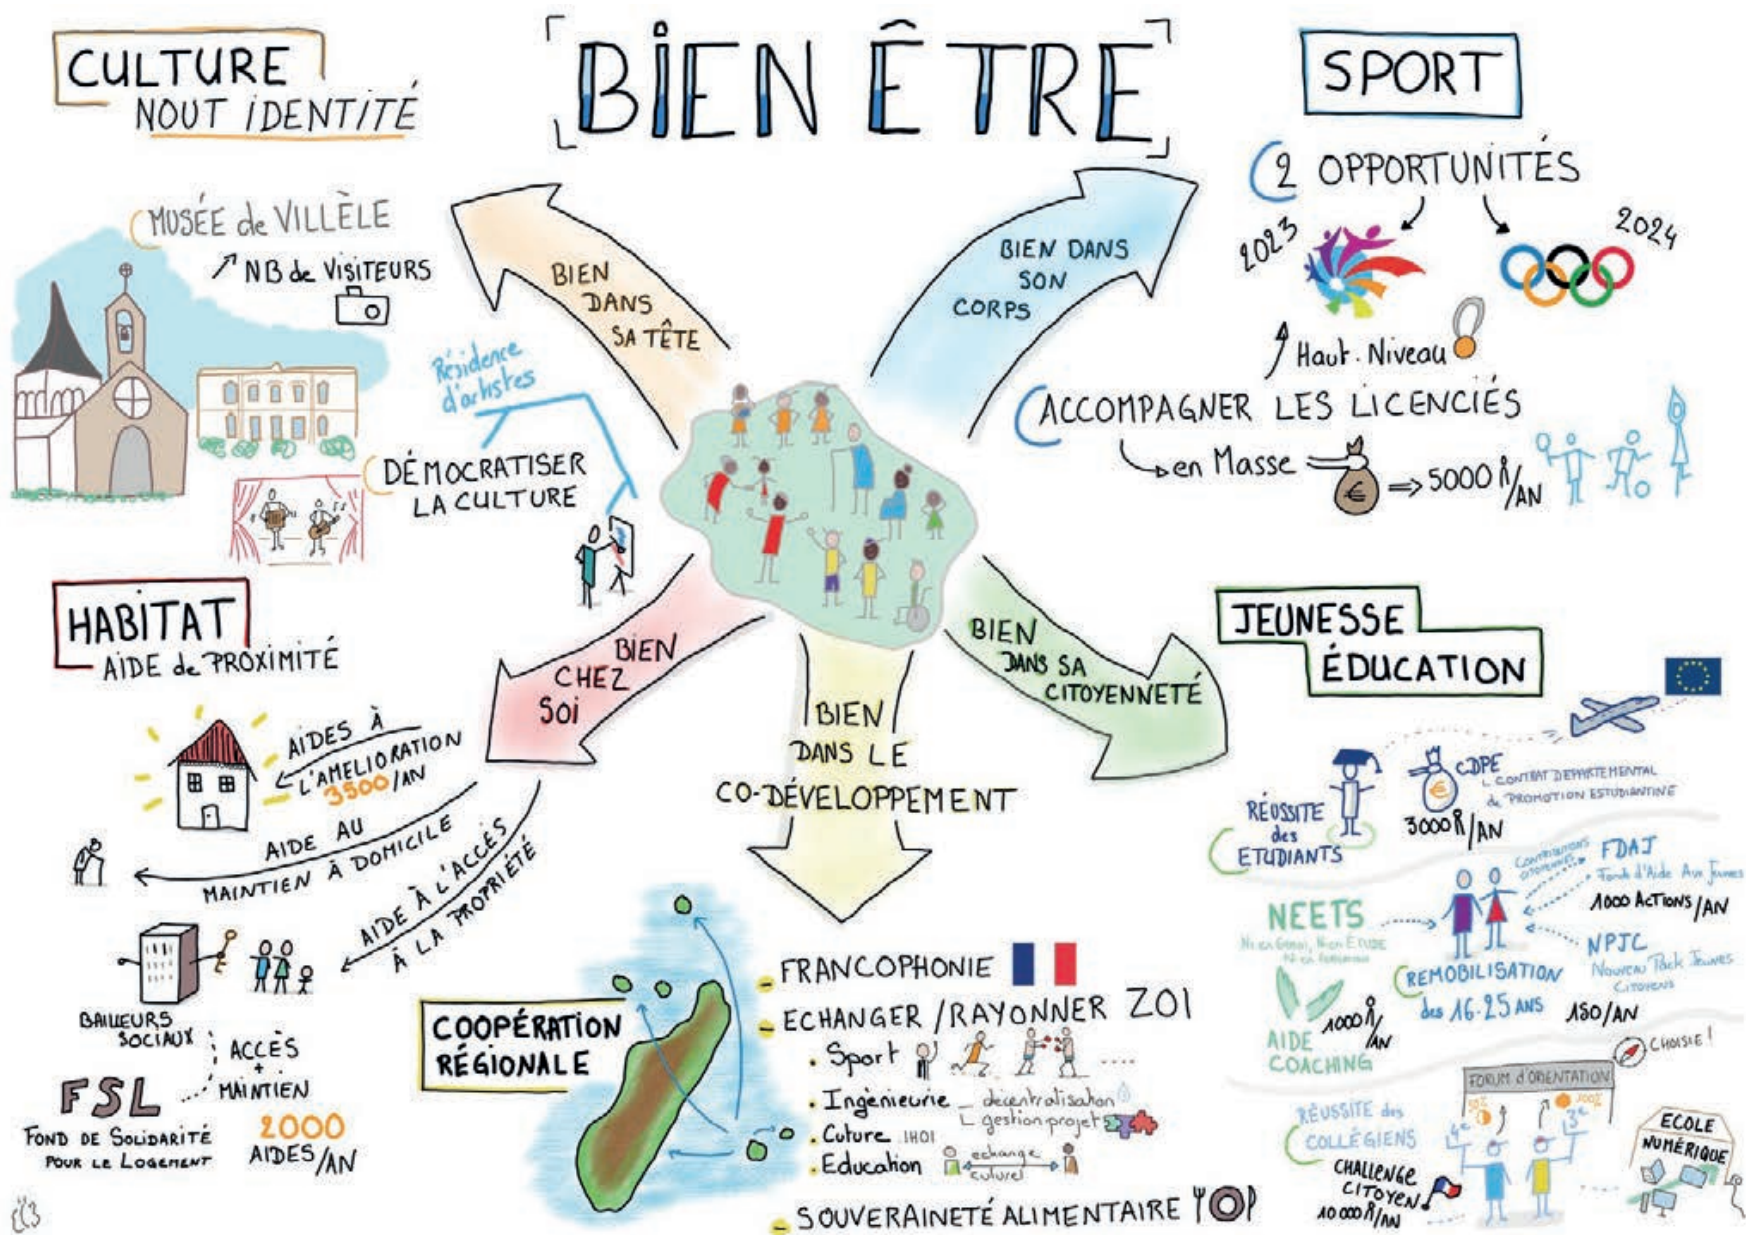 BIEN ÊTRE
CULTURE
NOUT IDENTITÉ
MUSÉE de VILLÈLE
NB de VISITEURS
Résidence
d'artistes
DÉMOCRATISER
LA CULTURE
BIEN
DANS
SA TÊTE
BIEN DANS
SON
CORPS
SPORT
2 OPPORTUNITÉS
2023
2024
Haut. Niveau
ACCOMPAGNER LES LICENCIÉS
en Masse
€
5000 /AN
HABITAT
AIDE de PROXIMITÉ
BIEN
CHEZ
SOI
AIDES À
L'AMELIORATION
3500/AN
AIDE AU
MAINTIEN À DOMICILE
AIDE À L'ACCÈS
À LA PROPRIÉTÉ
BAILLEURS
SOCIAUX
ACCÈS
+
MAINTIEN
FSL
FOND DE SOLIDARITÉ
POUR LE LOGEMENT
2000
AIDES/AN
BIEN
DANS LE
CO-DÉVELOPPEMENT
COOPÉRATION
RÉGIONALE
- FRANCOPHONIE
- ECHANGER/RAYONNER ZOI
. Sport ....
. Ingénieurie - décentralisation
gestion projet
. Cuture IHOI
. Education echange
culturel
- SOUVERAINETÉ ALIMENTAIRE
BIEN
DANS SA
CITOYENNETÉ
JEUNESSE
ÉDUCATION
RÉUSSITE
des
ETUDIANTS
€
CDPE
CONTRAT DEPARTEMENTAL
de PROMOTION ESTUDIANTINE
3000 /AN
CONTRIBUTIONS
CITOYENNES
FDAJ
Fonds d'Aide Aux Jeunes
1000 ACTIONS/AN
NEETS
NPJC
Nouveau Pack Jeunes
CITOYENS
REMOBILISATION
des 16-25 ANS
150/AN
1000 /AN
AIDE
COACHING
CHOISIE !
FORUM d'ORIENTATION
50%
100%
RÉUSSITE des
COLLÉGIENS
4e
3e
CHALLENGE
CITOYEN
10000 /AN
ECOLE
NUMÉRIQUE